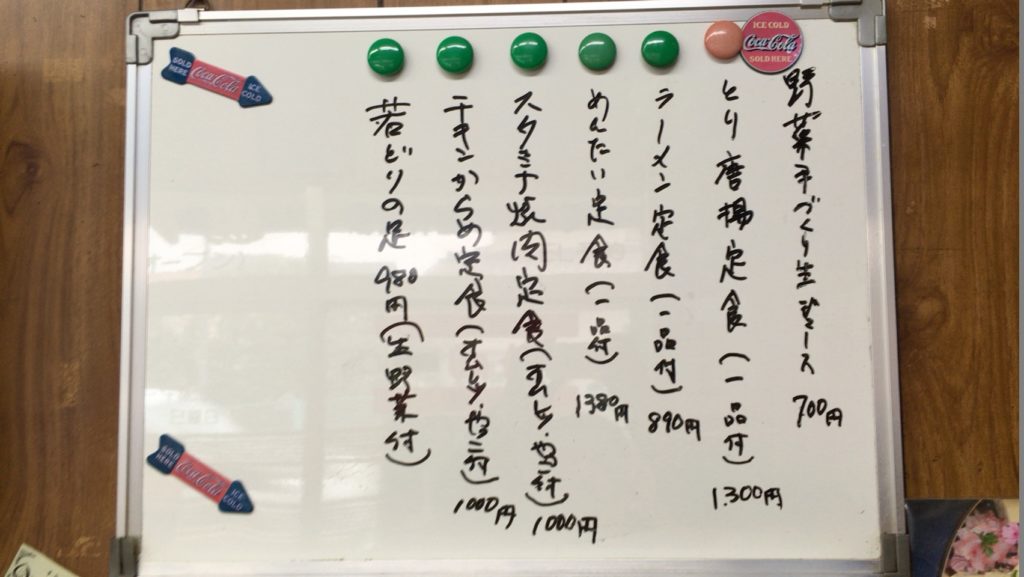 野菜手づくり生ジュース 700円
とり唐揚定食(一品付) 1300円
ラーメン定食(一品付) 890円
めんたい定食(一品付) 1380円
スタミナ焼肉定食(オムレツ・やっこ付) 1000円
チキンからめ定食(オムレツ・やっこ付) 1000円
若どりの足 980円(生野菜付)
ICE COLD
Coca-Cola
SOLD HERE
SOLD HERE
Coca-Cola
ICE COLD
SOLD HERE
Coca-Cola
ICE COLD